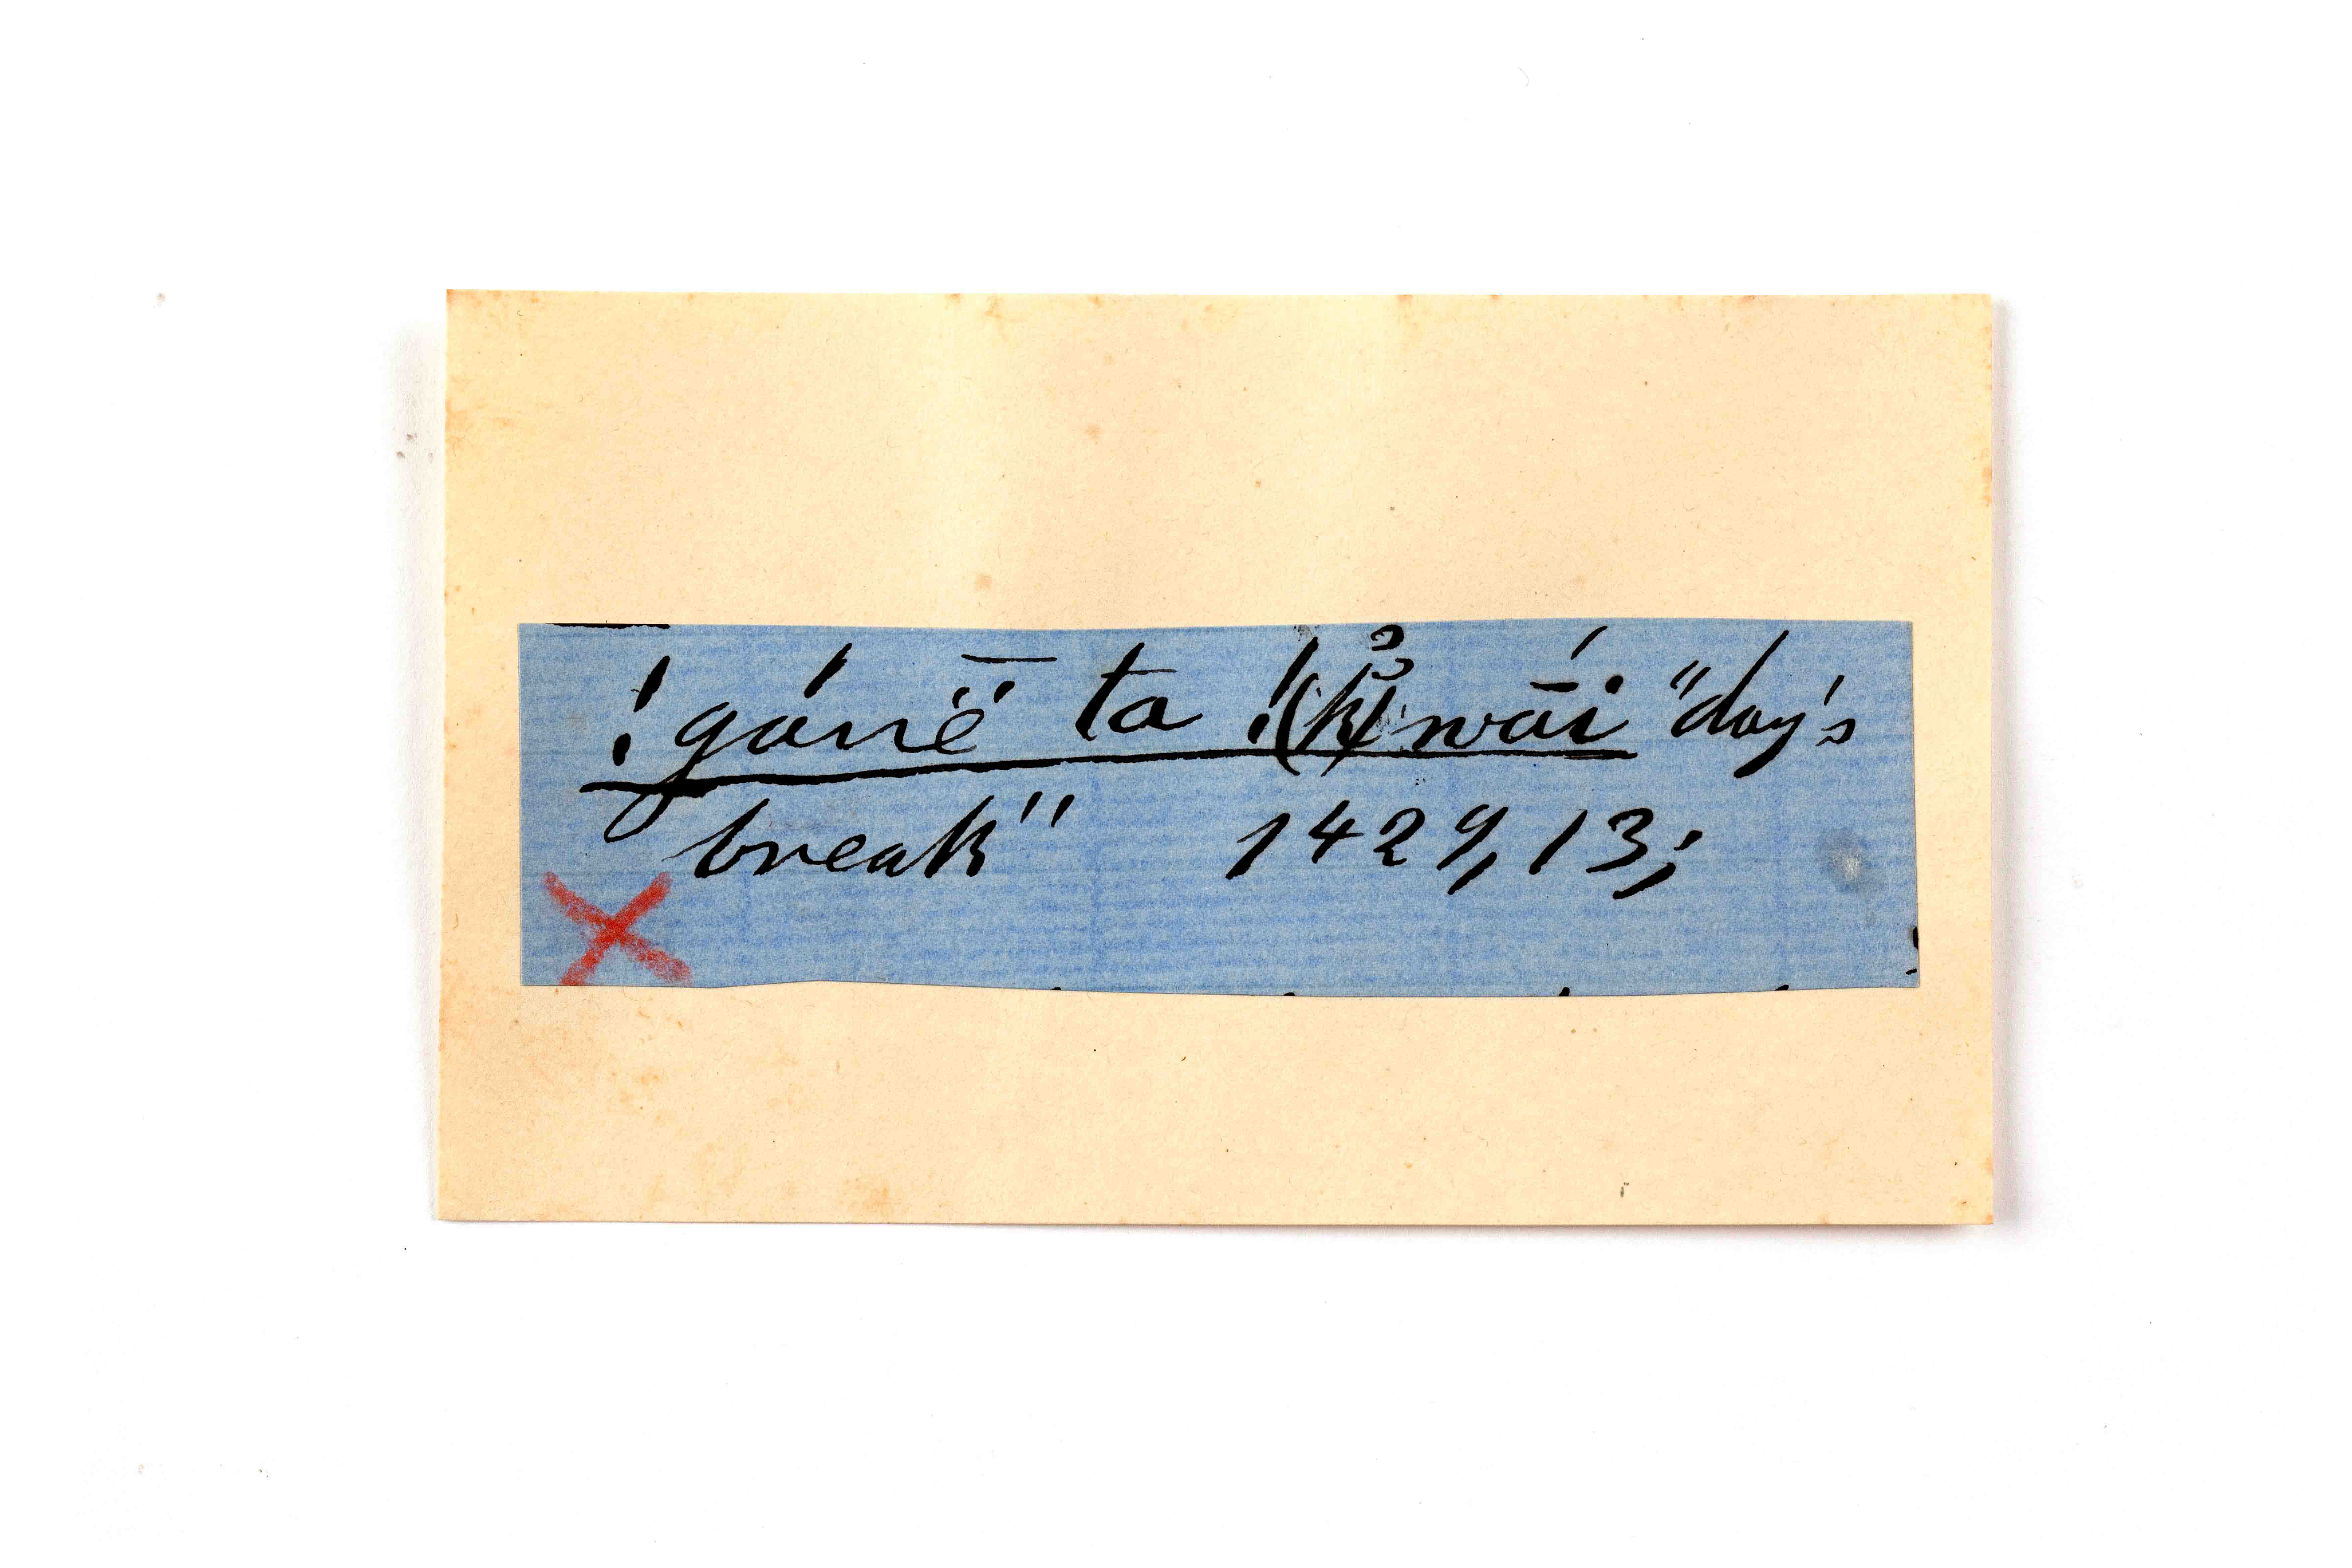 !gánë̄ ta !(k)wā́i "day's
break" 1429,13;